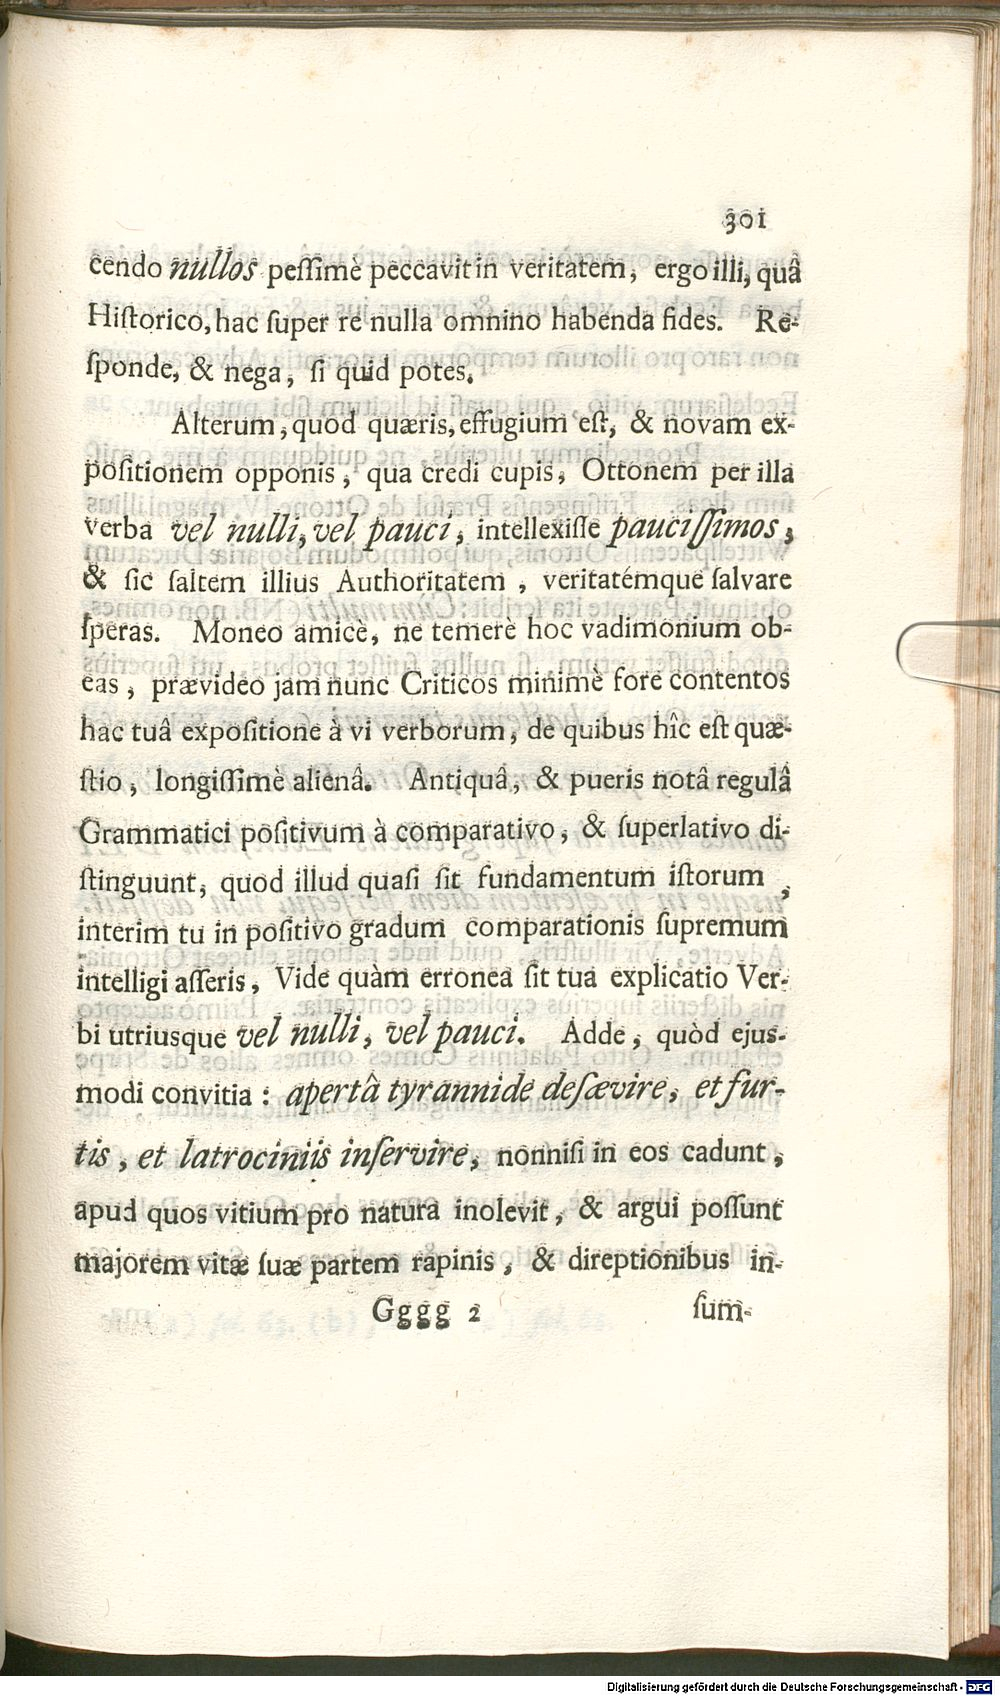 301
cendo nullos pessimè peccavit in veritatem, ergo illi, quâ
Historico, hac ſuper re nulla omnino habenda fides. Re-
ſponde, & nega, ſi quid potes.
Alterum, quod quæris, effugium eſt, & novam ex-
poſitionem opponis, qua credi cupis, Ottonem per illa
verba vel nulli, vel pauci, intellexiſſe pauciſſimos,
& ſic ſaltem illius Authoritatem, veritatémque ſalvare
ſperas. Moneo amicè, ne temerè hoc vadimonium ob-
eas, prævideo jam nunc Criticos minimè fore contentos
hac tuâ expoſitione à vi verborum, de quibus hîc eſt quæ-
ſtio, longiſſimè alienâ. Antiquâ, & pueris notâ regulâ
Grammatici poſitivum à comparativo, & ſuperlativo di-
ſtinguunt, quod illud quaſi ſit fundamentum iſtorum,
interim tu in poſitivo gradum comparationis ſupremum
intelligi aſſeris, Vide quàm erronea ſit tua explicatio Ver-
bi utriusque vel nulli, vel pauci. Adde, quòd ejus-
modi convitia: apertâ tyrannide deſævire, et fur-
tis, et latrociniis inſervire, nonniſi in eos cadunt,
apud quos vitium pro natura inolevit, & argui poſſunt
majorem vitæ ſuæ partem rapinis, & direptionibus in-
Gggg 2 ſum-
Digitalisierung gefördert durch die Deutsche Forschungsgemeinschaft - DFG